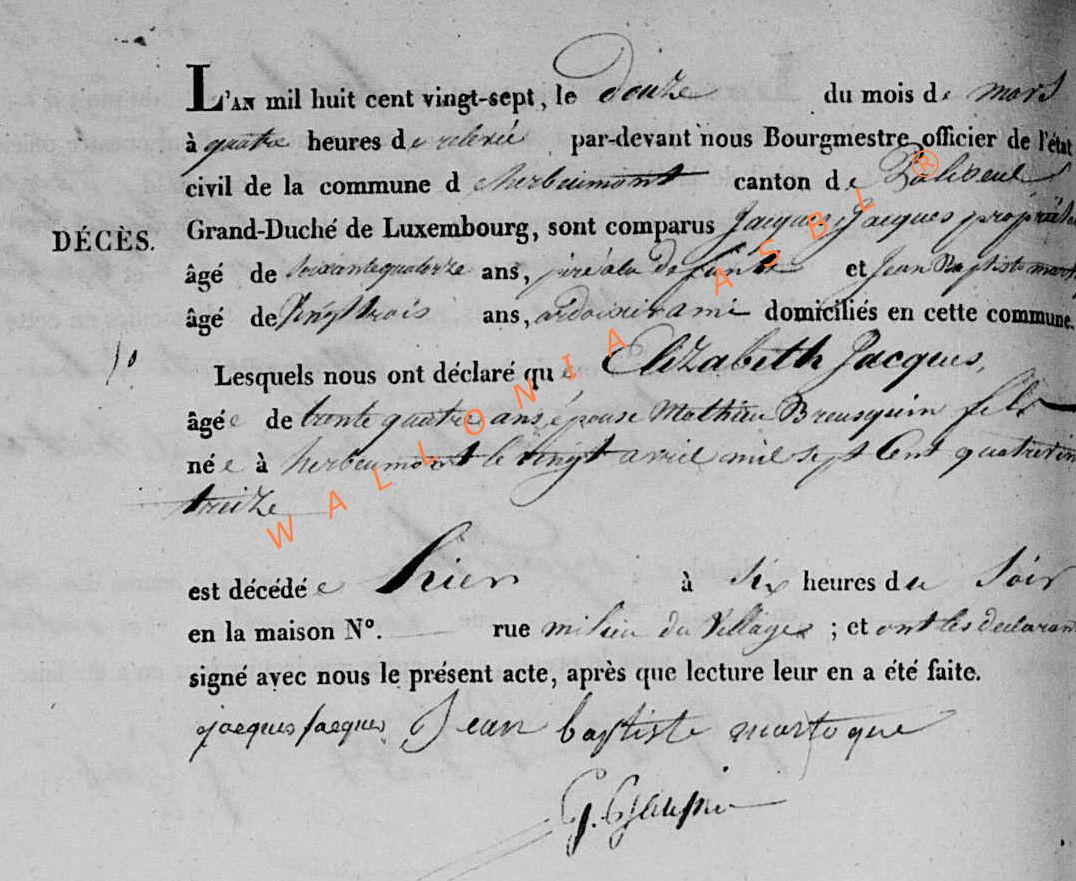 L'AN mil huit cent vingt-sept, le douze du mois de mars
à quatre heures de relevée par-devant nous Bourgmestre officier de l'état
civil de la commune d'herbeumont canton de Paliseul
DÉCÈS. Grand-Duché de Luxembourg, sont comparus Jacques Jacques propriétai
âgé de soixante quatorze ans, père à la défunte et Jean Baptiste mart
âgé de Vingt trois ans, ardoisier ami domiciliés en cette commune.
Lesquels nous ont déclaré que Elizabeth Jacques,
âgée de trente quatre ans épouse Mathieu
née à herbeumont le vingt avril mil sept Cent quatrevin
treize
est décédée hier à six heures du Soir
en la maison N°. rue milieu du Village ; et ont les declaran
signé avec nous le présent acte, après que lecture leur en a été faite.
jacques jacques Jean baptiste martoque
WALLONIA ASBL ®